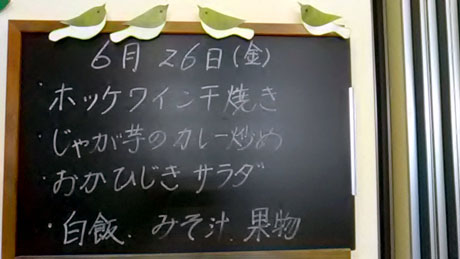 6月 26日(金)
・ホッケワイン干焼き
・じゃが芋のカレー炒め
・おかひじきサラダ
・白飯．みそ汁．果物